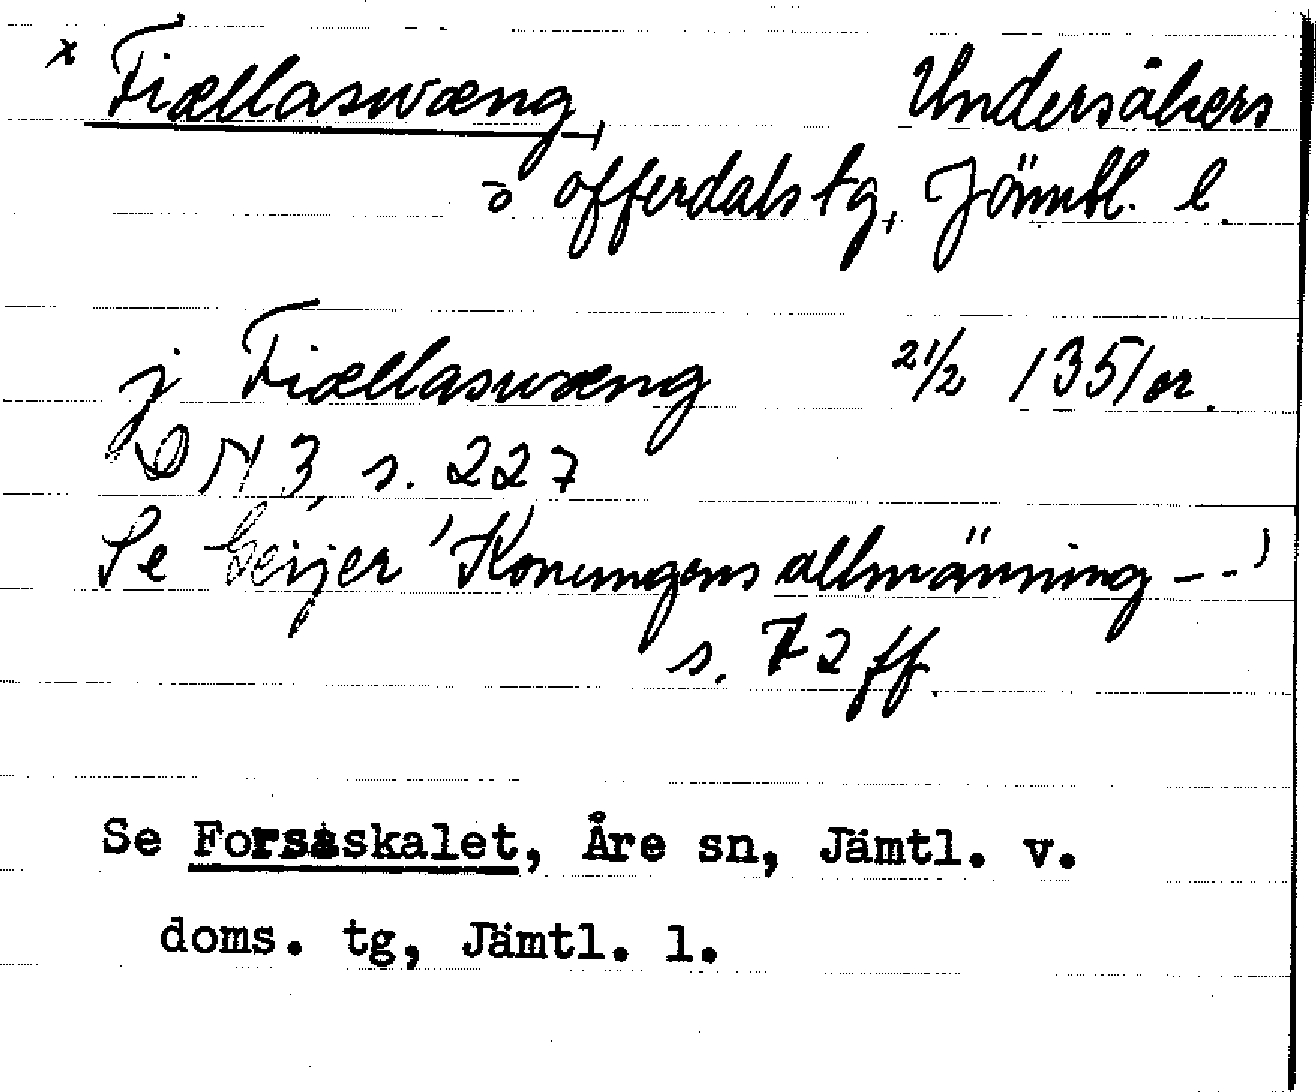 x Fiællaswæng, Undersåkers
o offerdals tg, Jämtl. l.
j Fiællaswæng 21/2 1351 or.
DN 3, s. 227
Se Geijer 'Konungens allmänning - -'
s. 72 ff.
Se Forsaskalet, Åre sn, Jämtl. v.
doms. tg, Jämtl. l.